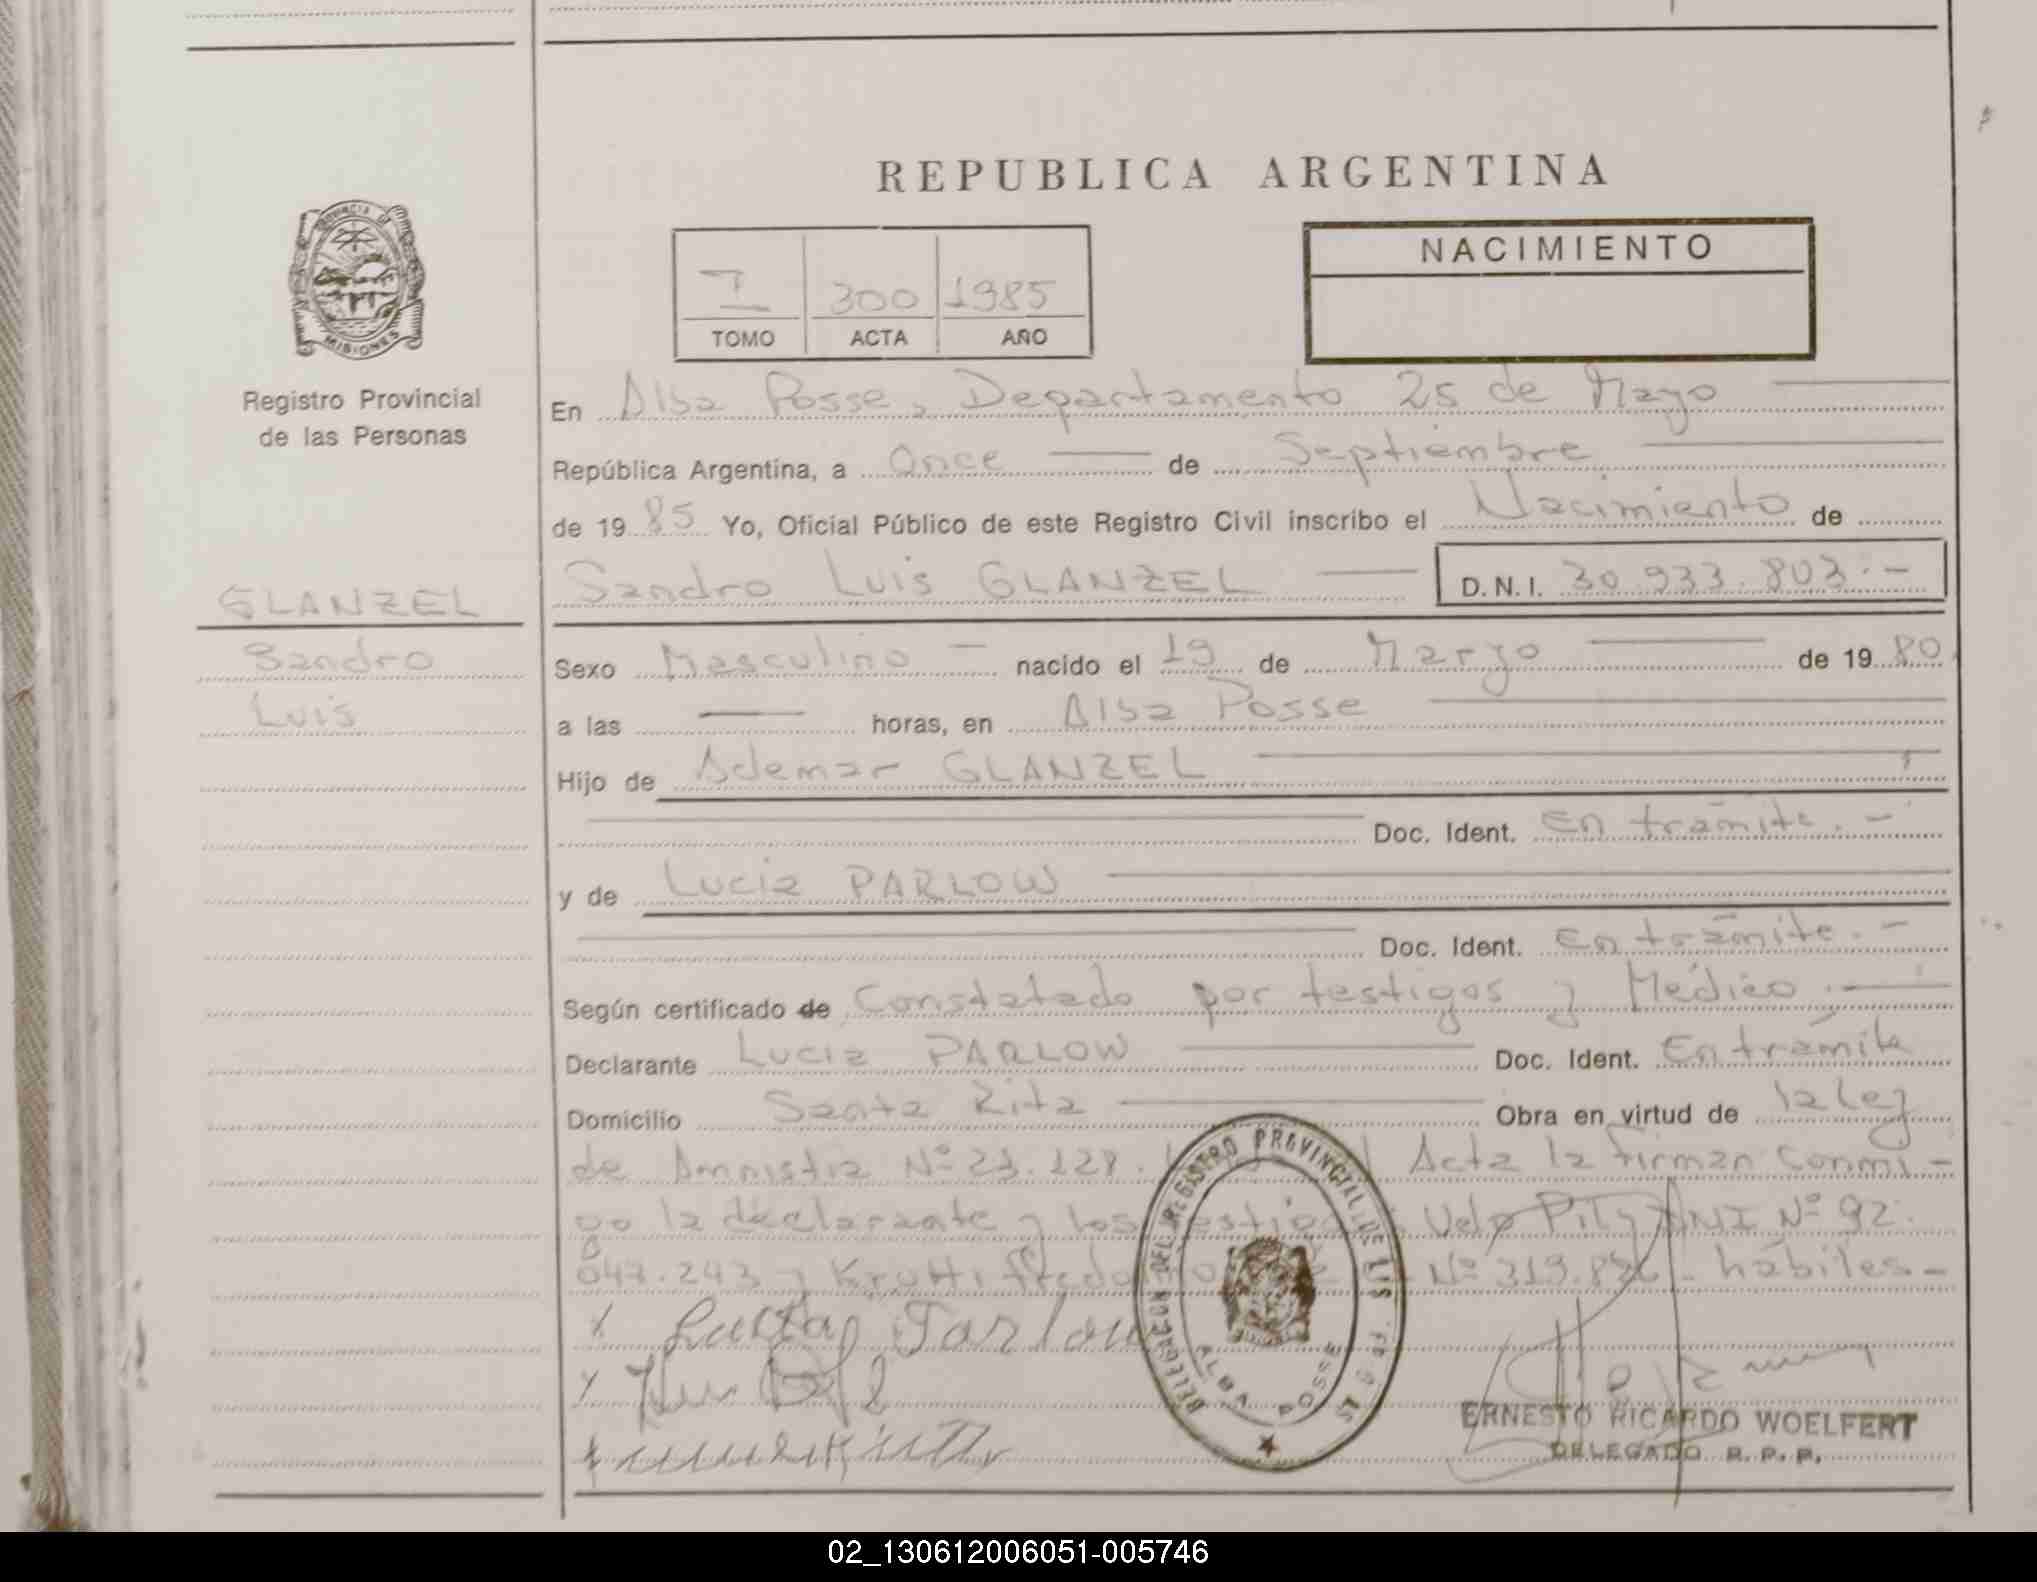 REPUBLICA ARGENTINA
PROVINCIA DE
MISIONES
Registro Provincial
de las Personas
I 300 1985
TOMO ACTA AÑO
NACIMIENTO
En Alba Posse, Departamento 25 de Mayo
República Argentina, a Once de Septiembre
de 19 85 Yo, Oficial Público de este Registro Civil inscribo el Nacimiento de
Sandro Luis GLANZEL D.N.I. 30.933.803.-
GLANZEL
Sandro
Luis
Sexo Masculino nacido el 19 de Marzo de 19 80
a las — horas, en Alba Posse
Hijo de Ademar GLANZEL
Doc. Ident. En trámite.-
y de Lucia PARLOW
Doc. Ident. En trámite.-
Según certificado de Constatado por testigos y Médico.
Declarante Lucia PARLOW Doc. Ident. En trámite
Domicilio Santa Rita Obra en virtud de la Ley
de Amnistia Nº 23.128. Acta la firman conmi-
go la declarante y los testigos Nº 92.
047.243 y Nº 319. habiles-
DELEGACION DEL REGISTRO PROVINCIAL DE LAS
ALBA POSSE
ERNESTO RICARDO WOELFERT
DELEGADO R. P. P.
02_130612006051-005746